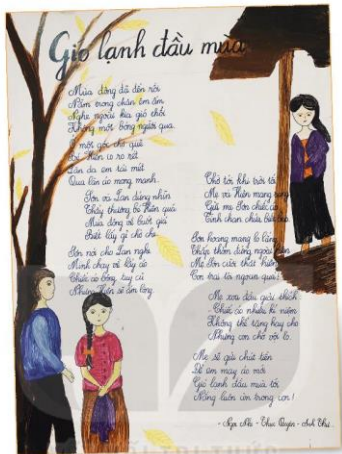 Gió lạnh đầu mùa
Mùa đông đã đến rồi
Nằm trong chăn ấm êm
Nghe ngoài kia gió thổi
Không một bóng người qua
Ở một góc chợ quê
Bé Hiên co ro rét
Làn da em tái mét
Qua làn áo mong manh.
Sơn và Lan đứng nhìn
Thấy thương bé Hiên quá
Mùa đông về buốt giá
Biết lấy gì chở che
Sơn nói cho Lan nghe
Mình chạy về lấy áo
Chiếc áo bông tuy cũ
Nhưng Hiên sẽ ấm lòng
Chờ tới khi trời tối
Mẹ và Hiên mang sang
Gửi mẹ Sơn chiếc áo
Tình thân chứa
Sơn hoang mang lo lắng
Thập thòm đứng ngoài hiên
Mẹ Sơn cười thật hiền
Con trai tôi ngoan quá!
Mẹ xoa đầu giải thích
- Chiếc áo nhiều kỉ niệm
Không thể tặng hay cho
Nhưng con chớ vội lo.
Mẹ sẽ gửi chút tiền
Để em may áo mới
Gió lạnh đầu mùa tới
Nồng luôn ấm trong con!
- Nga Nhi - Thu Quyên - Anh Thư -